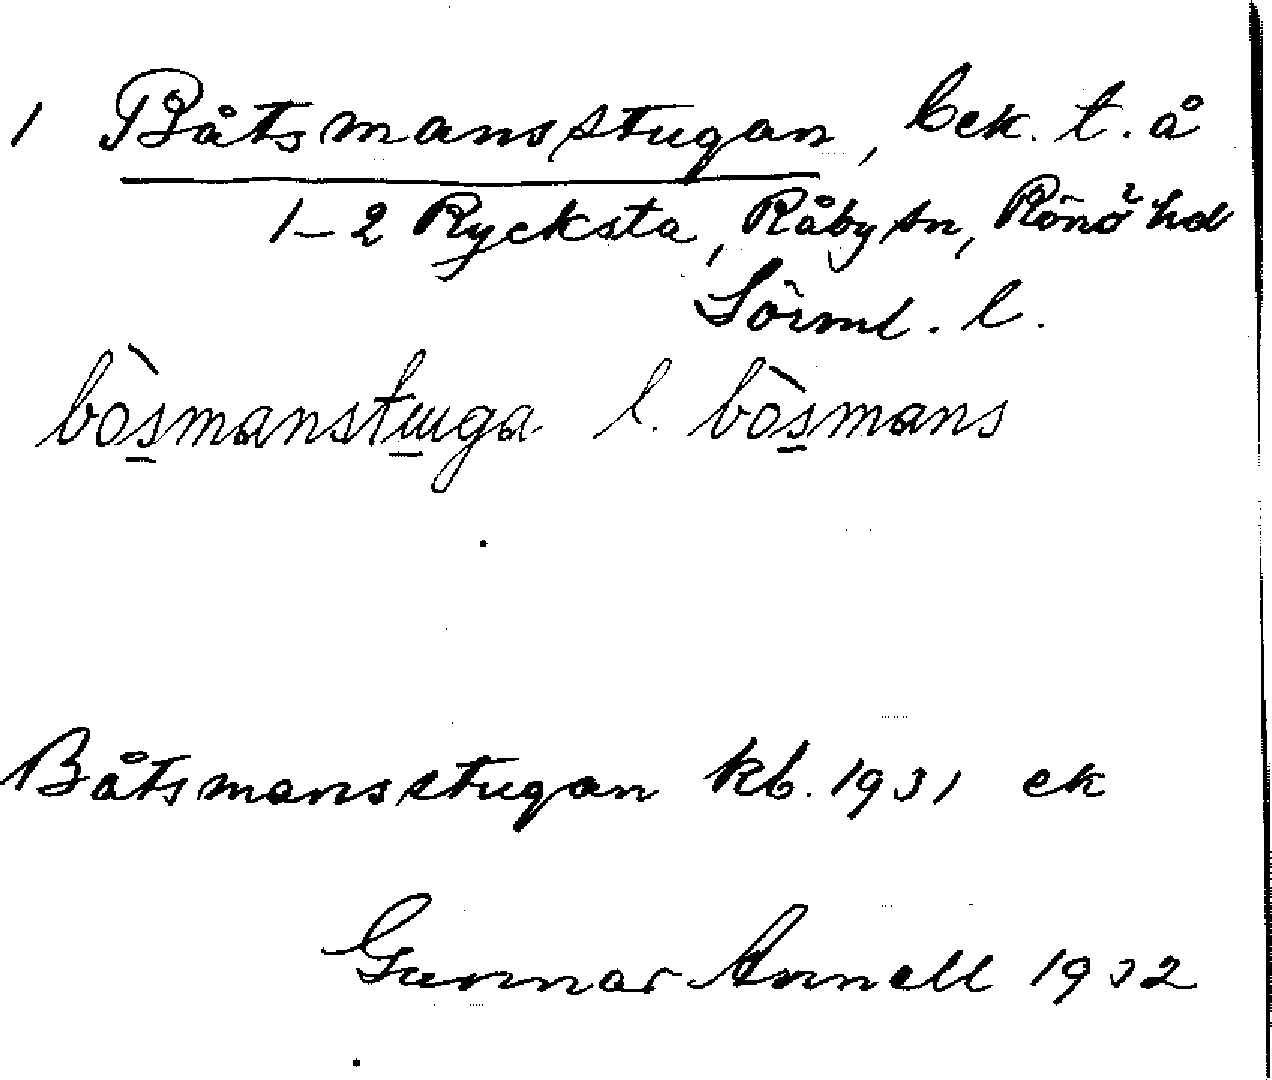 1 Båtsmansstugan, bek. t. å
1-2 Rycksta, Råby sn, Rönö hd
Sörml. l.
bòsmanstuga l. bòsmans
Båtsmansstugan kb. 1931 ek
Gunnar Annell 1932